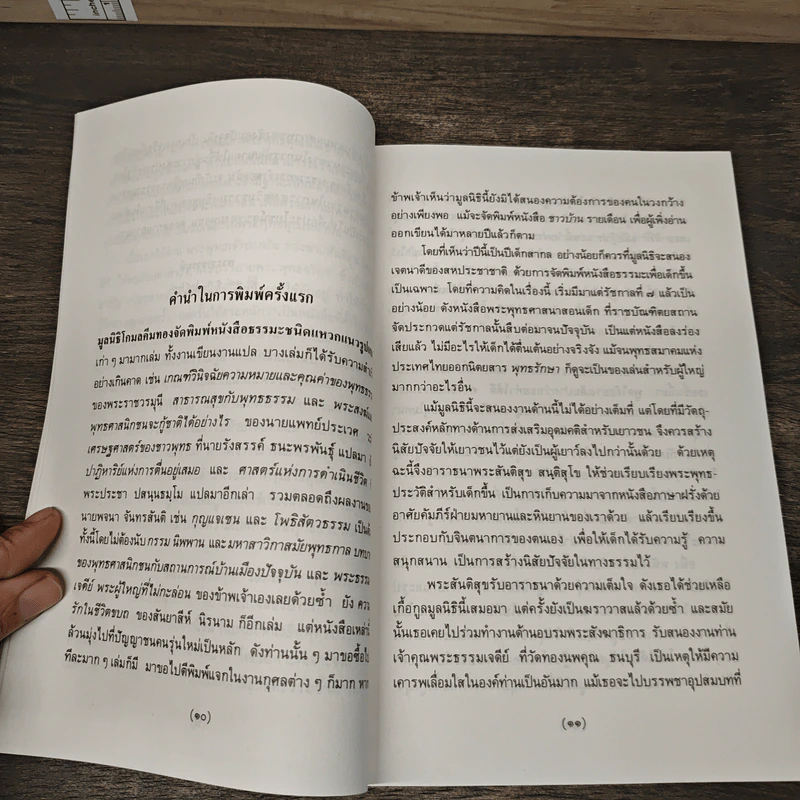 คำนำในการพิมพ์ครั้งแรก
มูลนิธิโกมลคีมทองจัดพิมพ์หนังสือธรรมะชนิดแหวกแนวรูป
เก่า ๆ มามากเล่ม ทั้งงานเขียนงานแปล บางเล่มก็ได้รับความสำ
อย่างเกินคาด เช่น เกณฑ์วินิจฉัยความหมายและคุณค่าของพุทธ
ของพระราชวรมุนี สาธารณสุขกับพุทธธรรม และ พระสงฆ์
พุทธศาสนิกชนจะกู้ชาติได้อย่างไร ของนายแพทย์ประเวศ
เศรษฐศาสตร์ของชาวพุทธ ที่นายรังสรรค์ ธนะพรพันธุ์ แปลมา
ปาฏิหาริย์แห่งการตื่นอยู่เสมอ และ ศาสตร์แห่งการดำเนินชีวิต
พระประชา ปสนฺนธมฺโม แปลมาอีกเล่า รวมตลอดถึงผลงานของ
นายพจนา จันทรสันติ เช่น กุญแจเซน และ โพธิสัตวธรรม เป็นต้
ทั้งนี้โดยไม่ต้องนับ กรรม นิพพาน และมหาสาวิกาสมัยพุทธกาล บทบา
ของพุทธศาสนิกชนกับสถานการณ์บ้านเมืองปัจจุบัน และ พระธรรม
เจดีย์ พระผู้ใหญ่ที่ไม่กะล่อน ของข้าพเจ้าเองเลยด้วยซ้ำ ยัง ความ
รักในชีวิตขบถ ของสันยาสีห์ นิรนาม ก็อีกเล่ม แต่หนังสือเหล่านี้
ล้วนมุ่งไปที่ปัญญาชนคนรุ่นใหม่เป็นหลัก ดังท่านนั้น ๆ มาขอซื้อไป
ทีละมาก ๆ เล่มก็มี มาขอไปตีพิมพ์แจกในงานกุศลต่าง ๆ ก็มาก หาก
(๑๐)
ข้าพเจ้าเห็นว่ามูลนิธินี้ยังมิได้สนองความต้องการของคนในวงกว้าง
อย่างเพียงพอ แม้จะจัดพิมพ์หนังสือ ชาวบ้าน รายเดือน เพื่อผู้เพิ่งอ่าน
ออกเขียนได้มาหลายปีแล้วก็ตาม
โดยที่เห็นว่าปีนี้เป็นปีเด็กสากล อย่างน้อยก็ควรที่มูลนิธิจะสนอง
เจตนาดีของสหประชาชาติ ด้วยการจัดพิมพ์หนังสือธรรมะเพื่อเด็กขึ้น
เป็นเฉพาะ โดยที่ความคิดในเรื่องนี้ เริ่มมีมาแต่รัชกาลที่ ๗ แล้วเป็น
อย่างน้อย ดังหนังสือพระพุทธศาสนาสอนเด็ก ที่ราชบัณฑิตยสถาน
จัดประกวดแต่รัชกาลนั้นสืบต่อมาจนปัจจุบัน เป็นแต่หนังสือลงร่อง
เสียแล้ว ไม่มีอะไรให้เด็กได้ตื่นเต้นอย่างจริงจัง แม้จนพุทธสมาคมแห่ง
ประเทศไทยออกนิตยสาร พุทธรักษา ก็ดูจะเป็นของเล่นสำหรับผู้ใหญ่
มากกว่าอะไรอื่น
แม้มูลนิธินี้จะสนองงานด้านนี้ไม่ได้อย่างเต็มที่ แต่โดยที่มีวัตถุ-
ประสงค์หลักทางด้านการส่งเสริมอุดมคติสำหรับเยาวชน จึงควรสร้าง
นิสัยปัจจัยให้เยาวชนไว้แต่ยังเป็นผู้เยาว์ลงไปกว่านั้นด้วย ด้วยเหตุ
ฉะนี้จึงอาราธนาพระสันติสุข สนฺติสุโข ให้ช่วยเรียบเรียงพระพุทธ-
ประวัติสำหรับเด็กขึ้น เป็นการเก็บความมาจากหนังสือภาษาฝรั่งด้วย
อาศัยคัมภีร์ฝ่ายมหายานและหินยานของเราด้วย แล้วเรียบเรียงขึ้น
ประกอบกับจินตนาการของตนเอง เพื่อให้เด็กได้รับความรู้ ความ
สนุกสนาน เป็นการสร้างนิสัยปัจจัยในทางธรรมไว้
พระสันติสุขรับอาราธนาด้วยความเต็มใจ ดังเธอได้ช่วยเหลือ
เกื้อกูลมูลนิธินี้เสมอมา แต่ครั้งยังเป็นฆราวาสแล้วด้วยซ้ำ และสมัย
นั้นเธอเคยไปร่วมทำงานด้านอบรมพระสังฆาธิการ รับสนองงานท่าน
เจ้าคุณพระธรรมเจดีย์ ที่วัดทองนพคุณ ธนบุรี เป็นเหตุให้มีความ
เคารพเลื่อมใสในองค์ท่านเป็นอันมาก แม้เธอจะไปบรรพชาอุปสมบทที่
(๑๑)